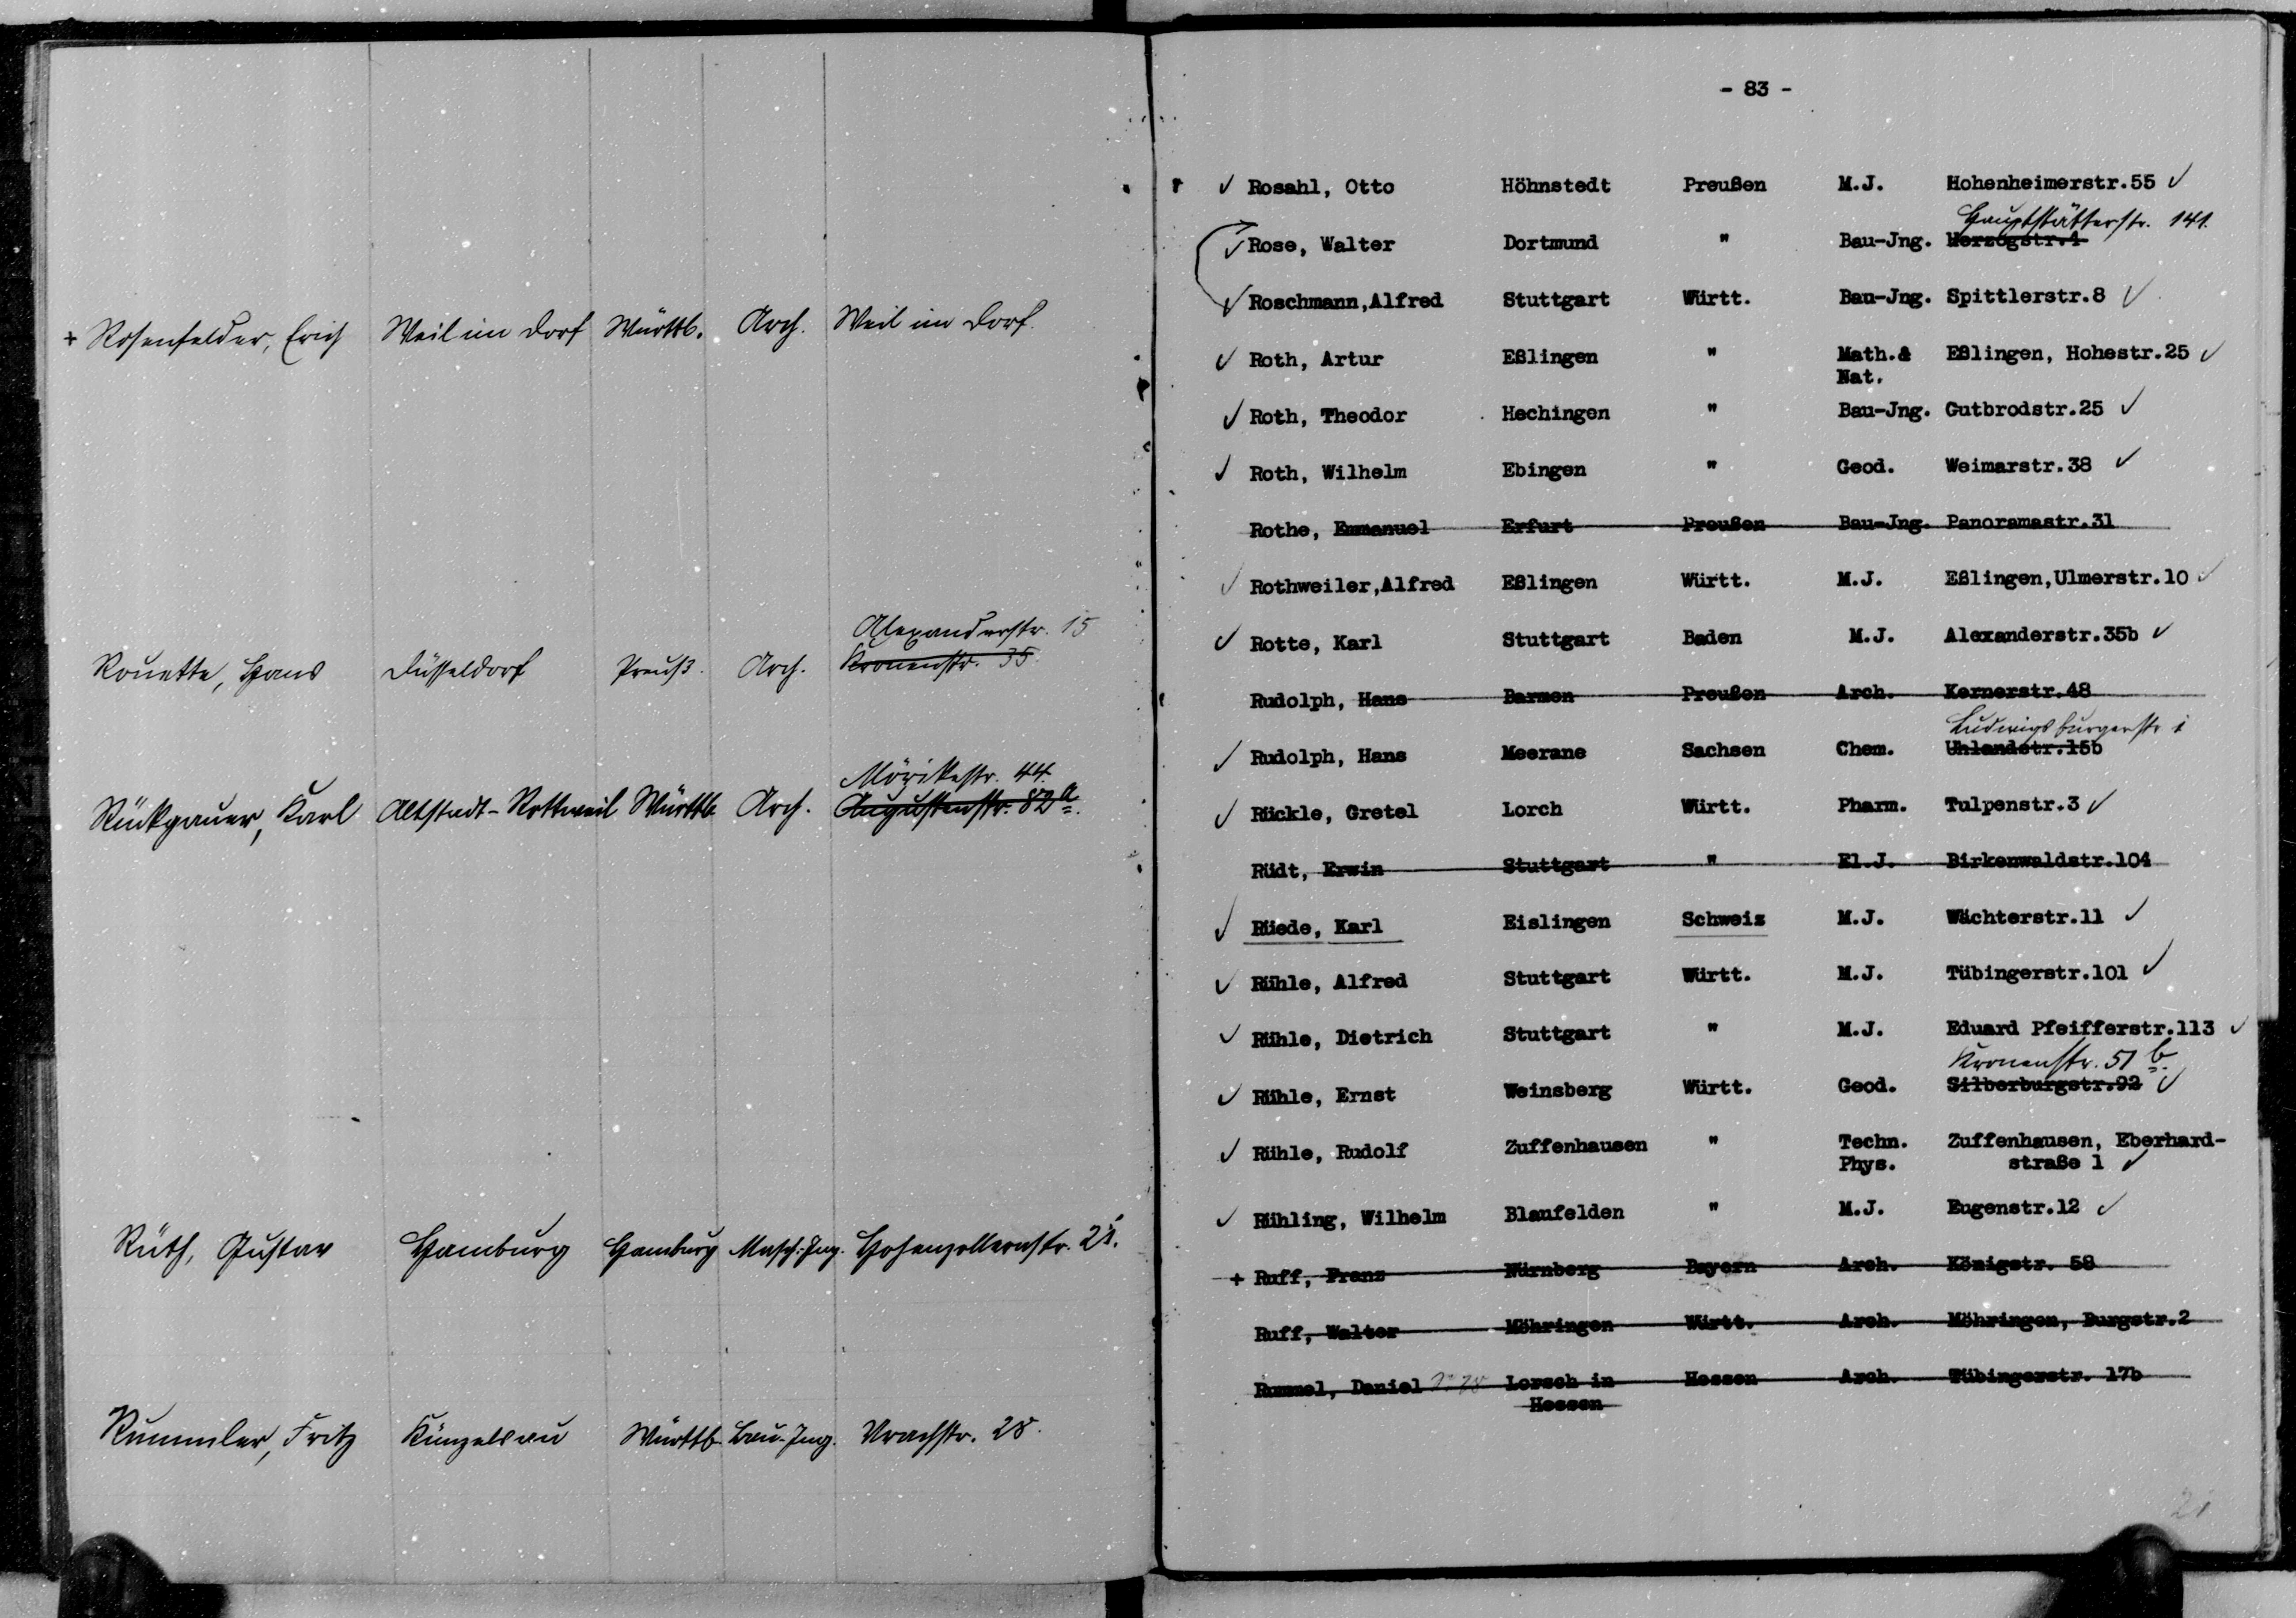 + Rosenfelder, Erich Weil im Dorf Württb. Arch. Weil im Dorf.
Alexanderstr. 15
Rouette, Hans Düsseldorf Preuß. Arch. Kronenstr. 35.
Mörikestr. 44.
Rückgauer, Karl Altstadt-Rottweil Württb. Arch. Augustenstr. 82a.
Rüth, Gustav Hamburg Hamburg Masch.-Ing. Hohenzollernstr. 21.
Rummler, Fritz Künzelsau Württb. Bau-Ing. Urachstr. 28.
- 83 -
✓ Rosahl, Otto Höhnstedt Preußen M.J. Hohenheimerstr.55 ✓
Hauptstätterstr. 141.
✓ Rose, Walter Dortmund " Bau-Jng. Herzogstr.4
✓ Roschmann,Alfred Stuttgart Württ. Bau-Jng. Spittlerstr.8 ✓
✓ Roth, Artur Eßlingen " Math.& Eßlingen, Hohestr.25 ✓
Nat.
✓ Roth, Theodor Hechingen " Bau-Jng. Gutbrodstr.25 ✓
✓ Roth, Wilhelm Ebingen " Geod. Weimarstr.38 ✓
Rothe, Emmanuel Erfurt Preußen Bau-Jng. Panoramastr.31
✓ Rothweiler,Alfred Eßlingen Württ. M.J. Eßlingen,Ulmerstr.10 ✓
✓ Rotte, Karl Stuttgart Baden M.J. Alexanderstr.35b ✓
Rudolph, Hans Barmen Preußen Arch. Kernerstr.48
Ludwigsburgerstr
✓ Rudolph, Hans Meerane Sachsen Chem. Uhlandstr.15b
✓ Rückle, Gretel Lorch Württ. Pharm. Tulpenstr.3 ✓
Rüdt, Erwin Stuttgart " El.J. Birkenwaldstr.104
✓ Rüede, Karl Eislingen Schweiz M.J. Wächterstr.11 ✓
✓ Rühle, Alfred Stuttgart Württ. M.J. Tübingerstr.101 ✓
✓ Rühle, Dietrich Stuttgart " M.J. Eduard Pfeifferstr.113 ✓
Kronenstr. 51 b.
✓ Rühle, Ernst Weinsberg Württ. Geod. Silberburgstr.92 ✓
✓ Rühle, Rudolf Zuffenhausen " Techn. Zuffenhausen, Eberhard-
Phys. straße 1 ✓
✓ Rühling, Wilhelm Blaufelden " M.J. Eugenstr.12 ✓
+ Ruff, Franz Nürnberg Bayern Arch. Königstr. 58
Ruff, Walter Möhringen Württ. Arch. Möhringen, Burgstr.2
Rummel, Daniel Lorsch in Hessen Arch. Tübingerstr. 17b
Hessen
21